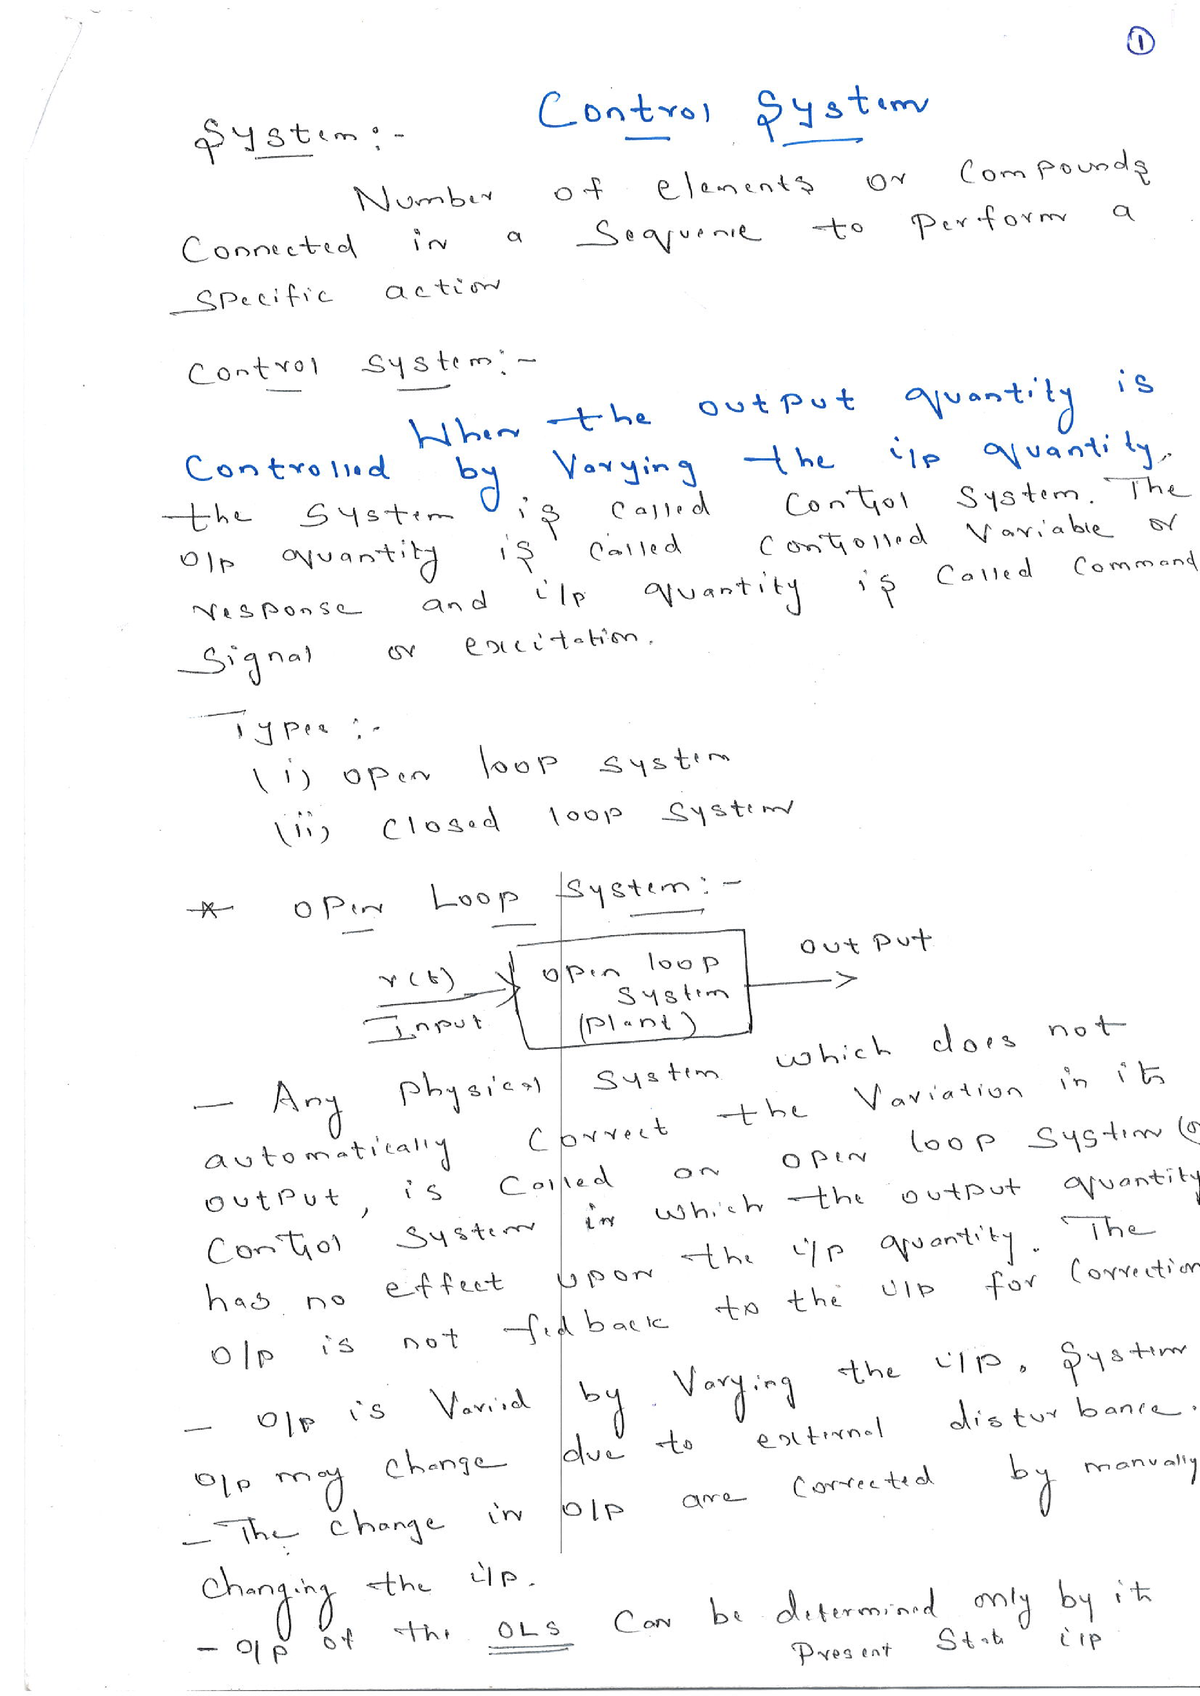 1
Control System
System :-
Number of elements or Compounds
Connected in a Sequence to Perform a
Specific action
Control System :-
When the output quantity is
Controlled by Varying the i/p quantity,
the System is Called Control System. The
o/p quantity is Called Controlled Variable or
response and i/p quantity is Called Command
Signal or excitation.
Types :-
(i) open loop system
(ii) closed loop System
* OPen Loop System :-
r(t)
Input
open loop
System
(plant)
output
- Any physical System which does not
automatically Correct the Variation in its
output, is Called an open loop System (o
Control System in which the output quantity
has no effect upon the i/p quantity. The
o/p is not fed back to the i/p for Correction
- o/p is Varied by Varying the i/p. System
o/p may change due to external disturbance.
- The change in o/p are Corrected by manually
changing the i/p.
- o/p of the OLS Can be determined only by its
Present State i/p